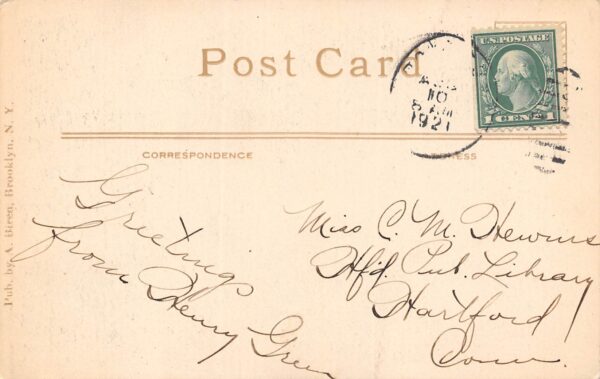 Post Card
U.S. POSTAGE
1 CENT 1
10
1921
CORRESPONDENCE
Greetings
from Henry Green
Miss C. M. Hewins
Hfd. Pub. Library
Hartford
Conn.
Pub. by A. Bicen, Brooklyn, N. Y.